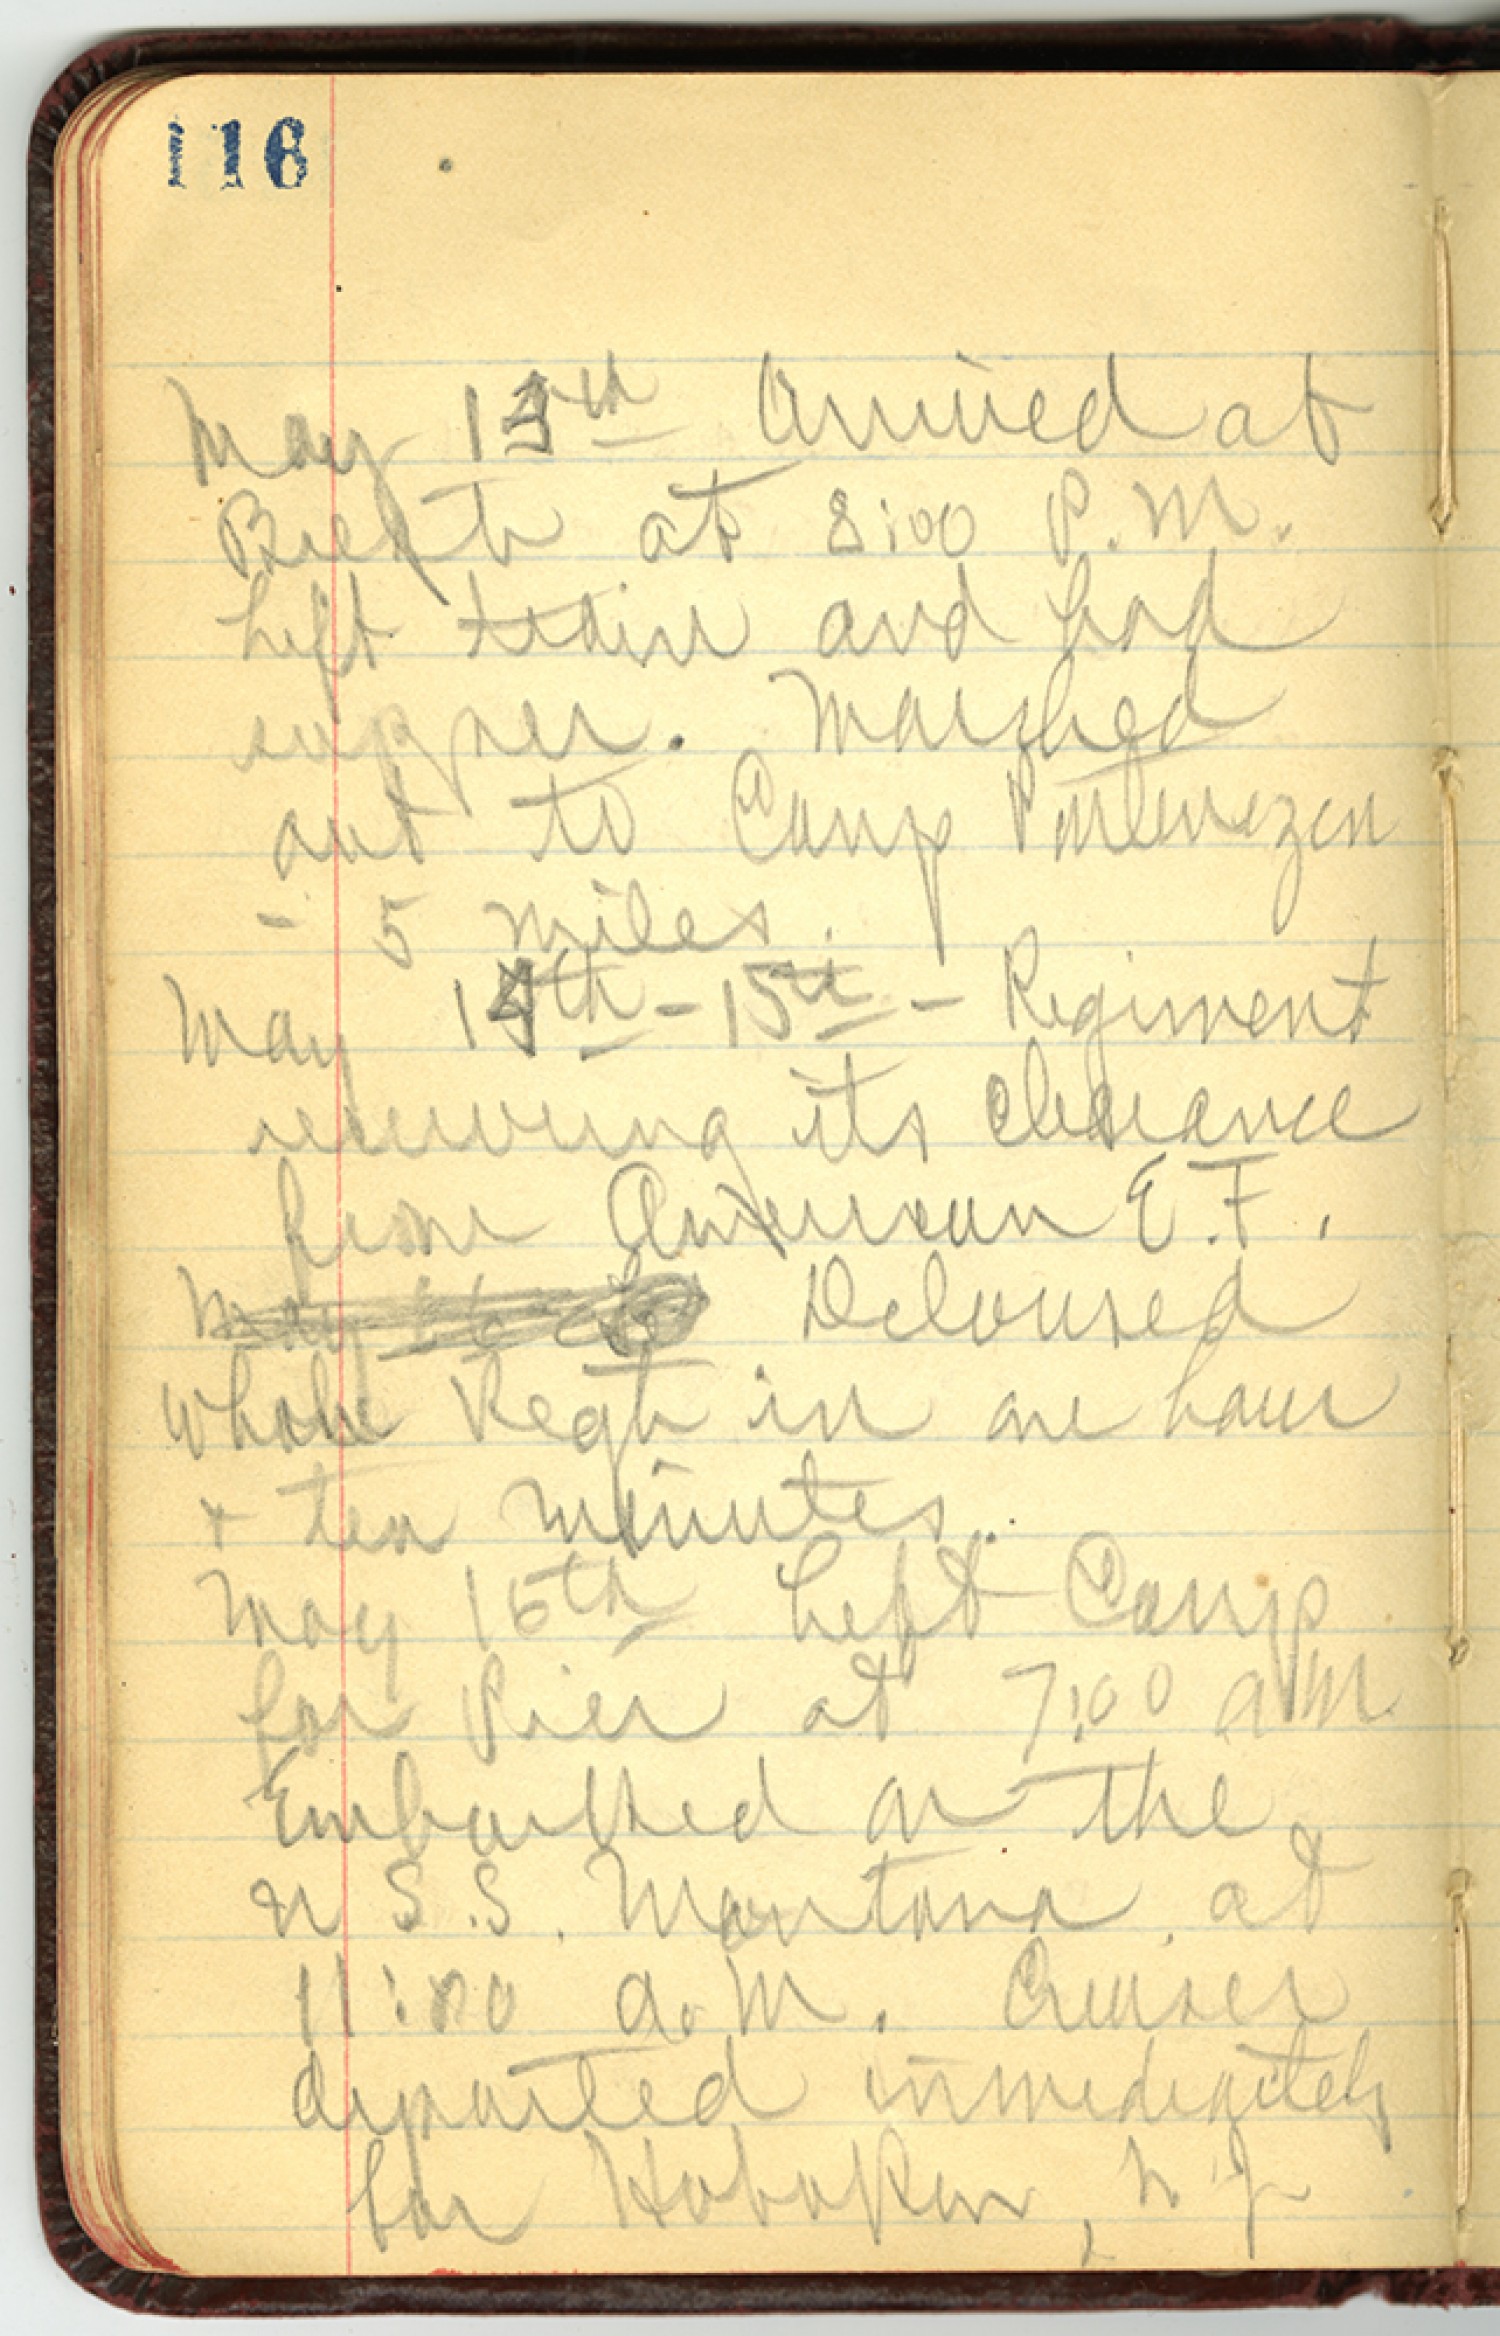 116
May 13th Arrived at
Brest at 8:00 P.M.
Left train and had
supper. Marched
out to Camp Pontenezen
- 5 miles.
May 14th - 15th - Regiment
receiving its clearance
from American E.F.
May 16 Deloused
whole Regt in one hour
+ ten minutes.
May 16th Left Camp
for Pier at 7:00 a M
Embarked on the
U S.S. Montana at
11:00 a.m. Cruiser
departed immediately
for Hoboken, N.J.